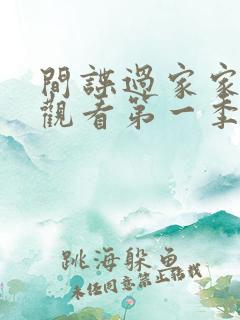 間諜過家家
觀看第一季
跳海躲魚
未經同意禁止轉載